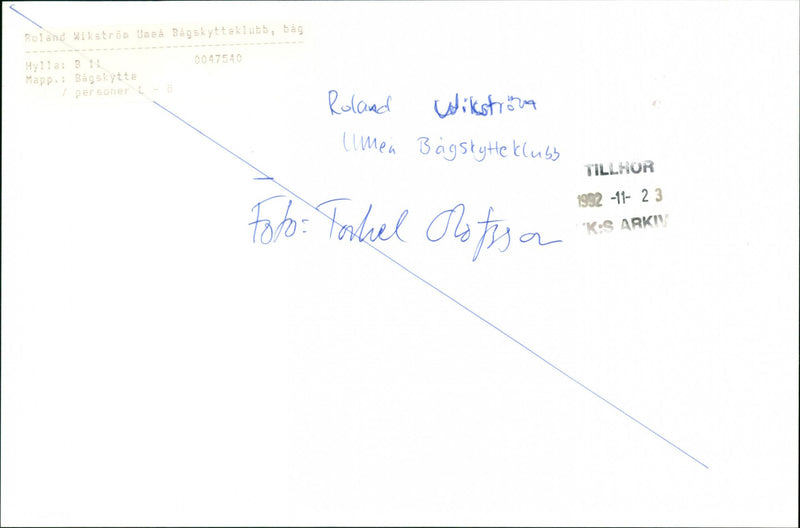 Roland Wikström Umeå Bågskytteklubb, båg
Hylla: B 11 0047540
Mapp.: Bågskytte
/ personer L - Ö
Roland Wikström
Umeå Bågskytteklubb
TILLHÖR
1992 -11- 2 3
VK:S ARKIV
Foto: Torkel Olofsson